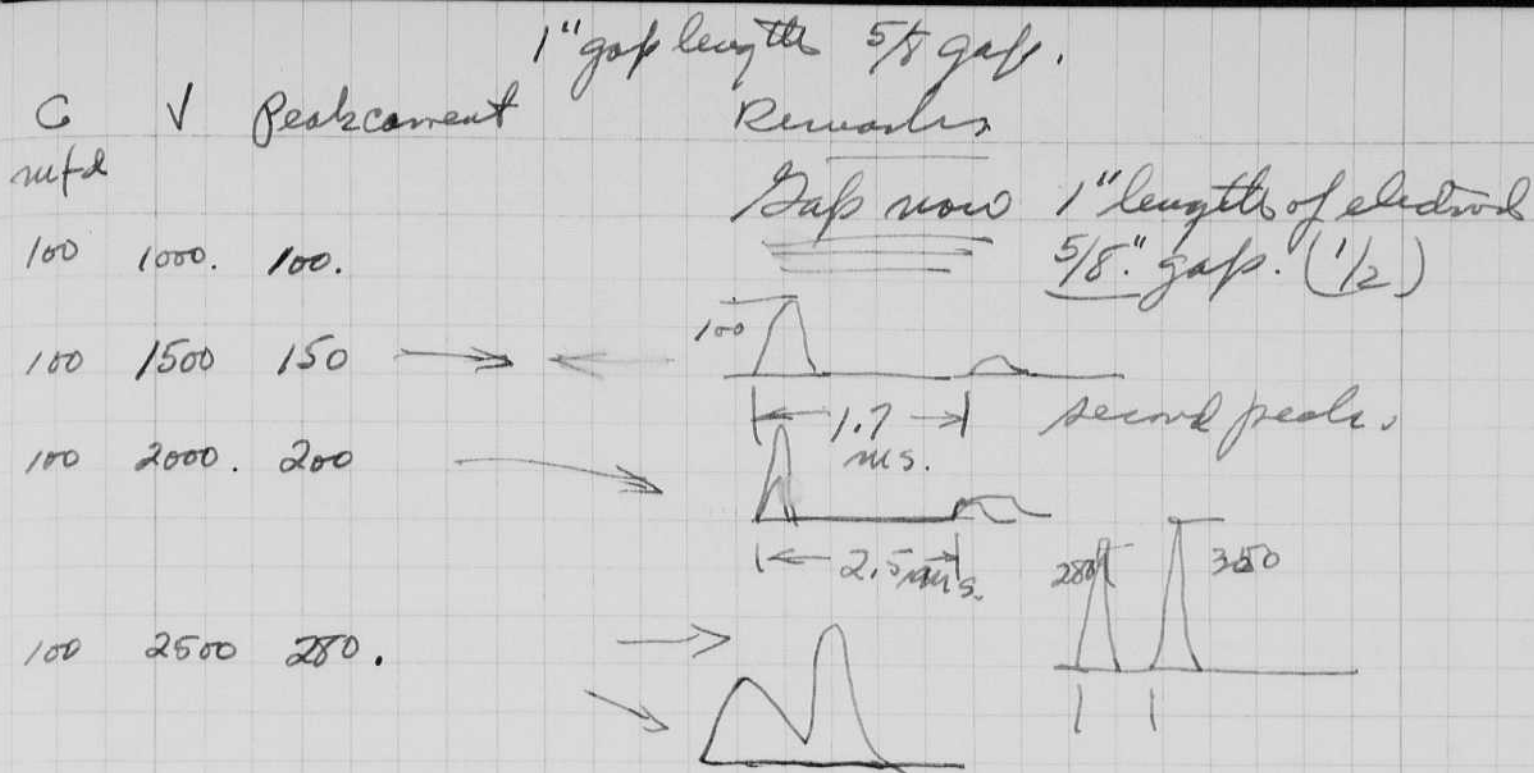 1" gap length 5/8 gap.
C V Peak current Remarks
mfd
Gap now 1" length of electrod
5/8" gap. (1/2)
100 1000. 100.
100
100 1500 150
1.7 ms.
second peak.
100 2000. 200
2.5 ms.
280 350
100 2500 280.